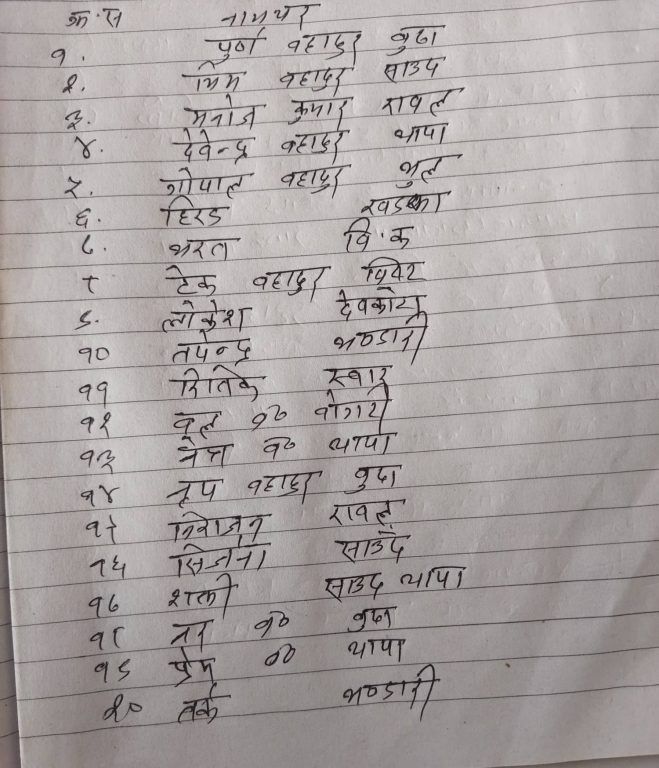 क्र.स नामथर
१. पुर्ण बहादुर बुढा
२. भिम बहादुर साउद
३. मनोज कुमार रावल
४. देवेन्द्र बहादुर थापा
५. गोपाल बहादुर भुल
६. हिरड खड्का
७. भरत वि.क
८ टेक बहादुर
९. लोकेश देवकोटा
१० तपेन्द्र भण्डारी
११ रितिक स्वार
१२ वुल ब० वोगटी
१३ नेत्र ब० थापा
१४ नृप बहादुर बुढा
१५ निराजन रावल
१६ सिर्जना साउद
१७ शक्ती साउद थापा
१८ नर ब० बुढा
१९ प्रेम ब० थापा
२० तर्क भण्डारी